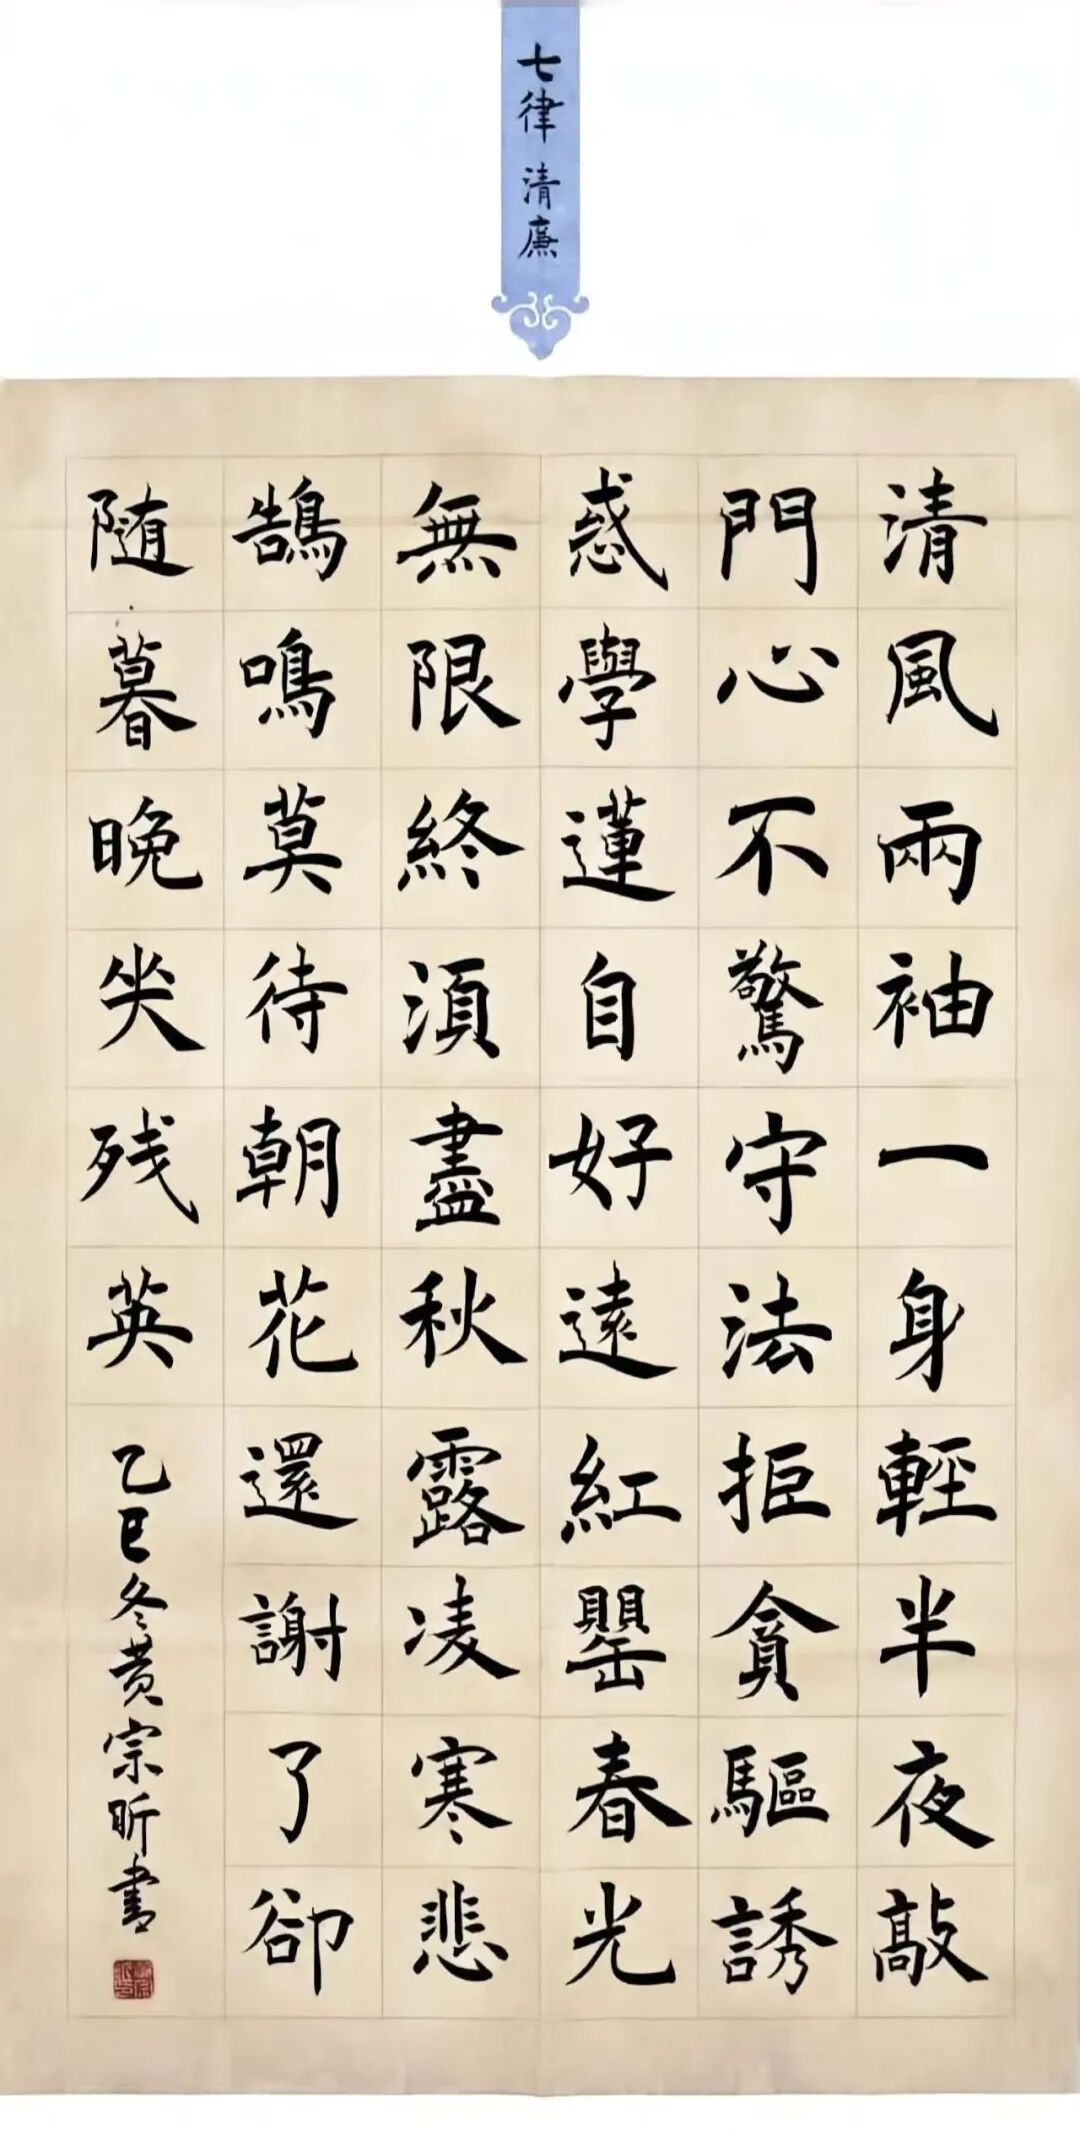 七律 清廉
清風兩袖一身輕半夜敲
門心不驚守法拒貪驅誘
惑學蓮自好遠紅罌春光
無限終須盡秋露凌寒悲
鵠鳴莫待朝花還謝了卻
随暮晚尖残英
乙巳冬黄宗昕書